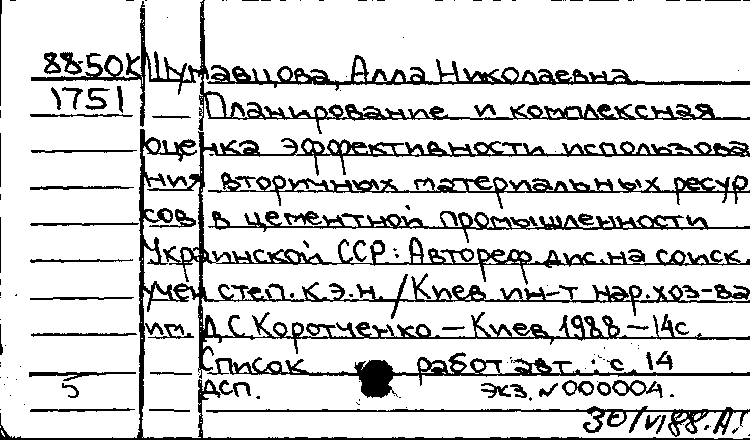 88-50К Шумавцова, Алла Николаевна
1751 Планирование и комплексная
оценка эффективности использова
ния вторичных материальных ресур
сов в цементной промышленности
Украинской ССР: Автореф. дис. на соиск.
учен. степ. к.э.н. / Киев. ин-т нар. хоз-ва
им. Д.С. Коротченко. — Киев, 1988. — 14 с.
Список работ авт.: с. 14
5 ДСП. экз. № 000004.
30/VI 88. А.